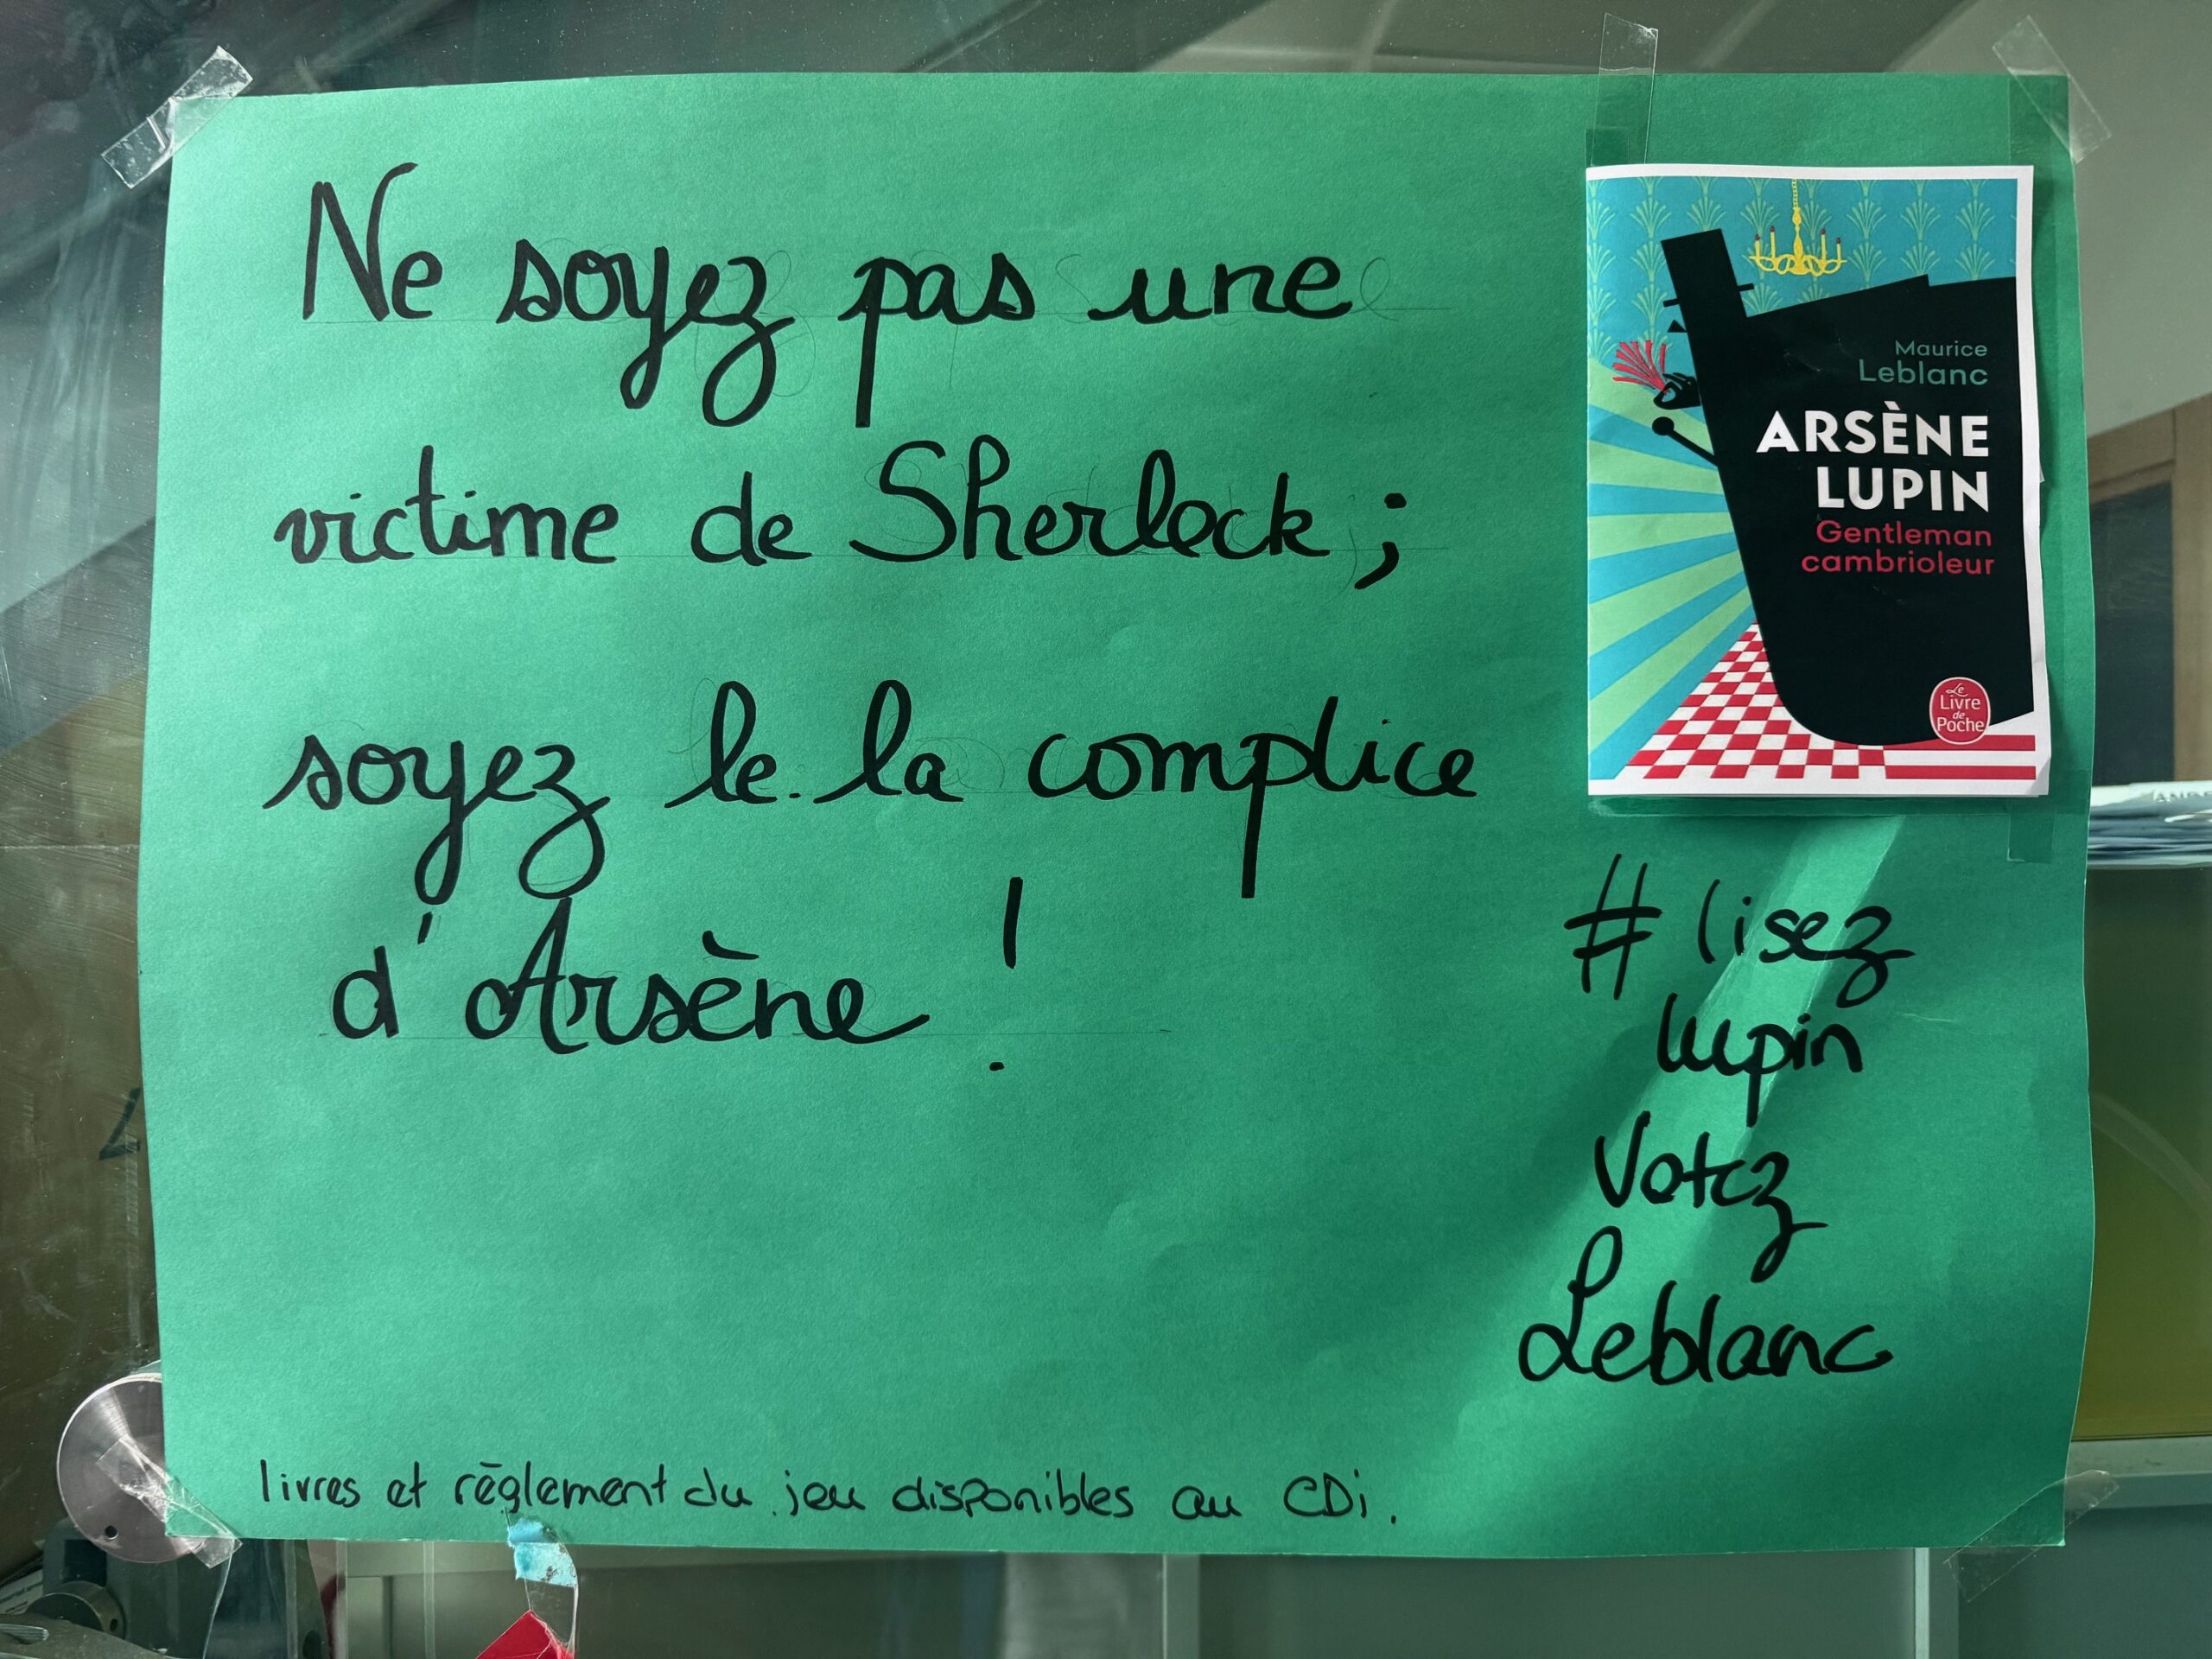 Ne soyez pas une
victime de Sherlock ;
soyez le.la complice
d'Arsène !
Maurice
Leblanc
ARSÈNE
LUPIN
Gentleman
cambrioleur
Le
Livre
de
Poche
# lisez
lupin
Votez
Leblanc
livres et règlement du jeu disponibles au CDi.